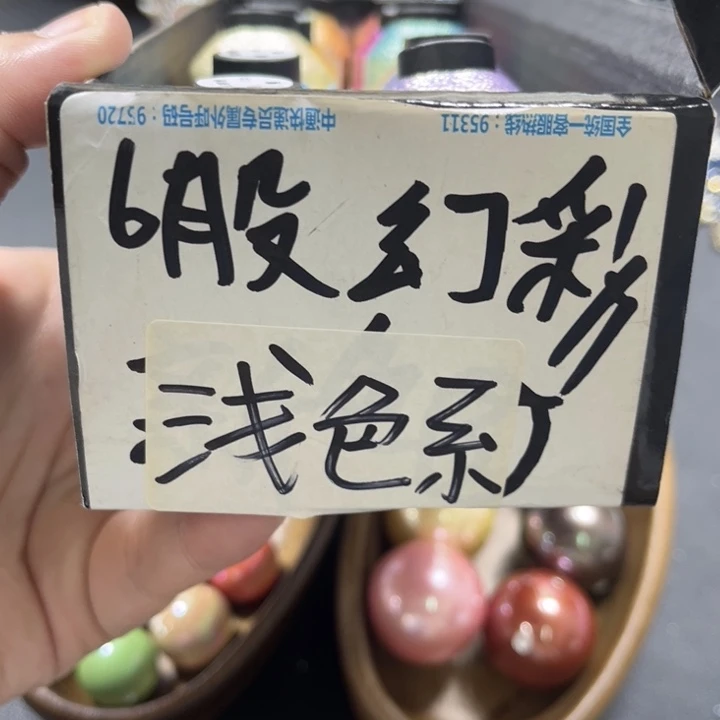 中通快递员专属外呼号码：95720
全国统一客服热线：95311
6股幻彩
浅色系